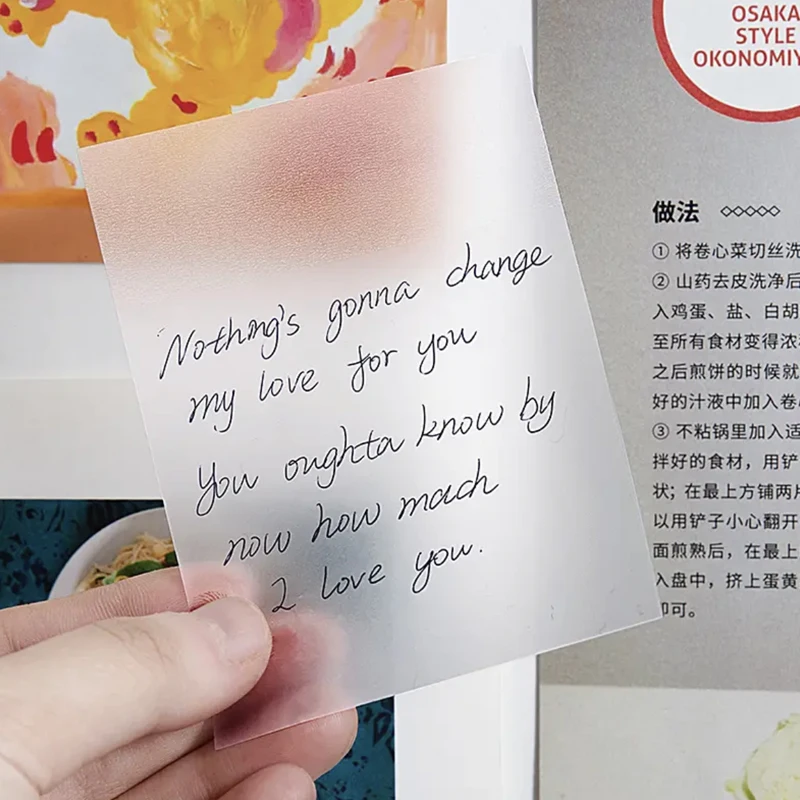 OSAKA
STYLE
Nothing's gonna change
my love for you
You oughta know by
now how much
I love you.
做法
① 将卷心菜切丝洗
② 山药去皮洗净后
入鸡蛋、盐、白胡
至所有食材变得浓
之后煎饼的时候就
好的汁液中加入卷
③ 不粘锅里加入适
拌好的食材，用铲
状；在最上方铺两
以用铲子小心翻开
面煎熟后，在最上
入盘中，挤上蛋黄
即可。